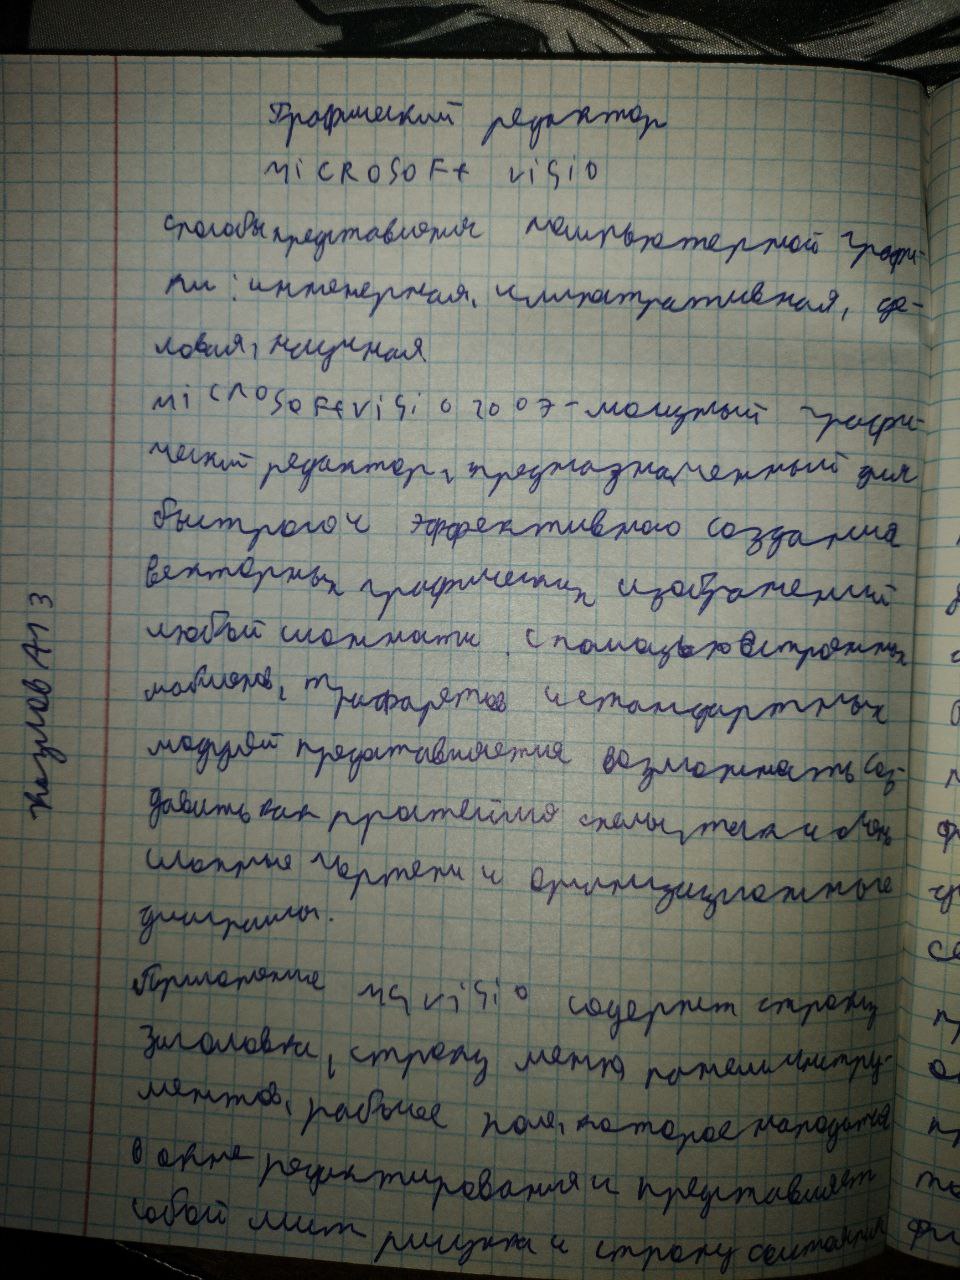 Графический редактор
MiCROSOFt ViSiO
Способы представления компьютерной графи-
ки: инженерная, иллюстративная, де-
ловая, научная
MiCROSOFt ViSiO 2007 - мощный графи-
ческий редактор, предназначенный для
быстрого и эффективного создания
векторных графических изображений
любой сложности. С помощью встроенных
шаблонов, трафаретов и стандартных
модулей предоставляется возможность соз-
давать как простейшие схемы, так и очень
сложные чертежи и организационные
диаграммы.
Приложение MS ViSiO содержит строку
Заголовка, строку меню, панели инстру-
ментов, рабочее поле, которое находится
в окне редактирования и представляет
собой лист рисунка и строку состояния
Козлов АП 3